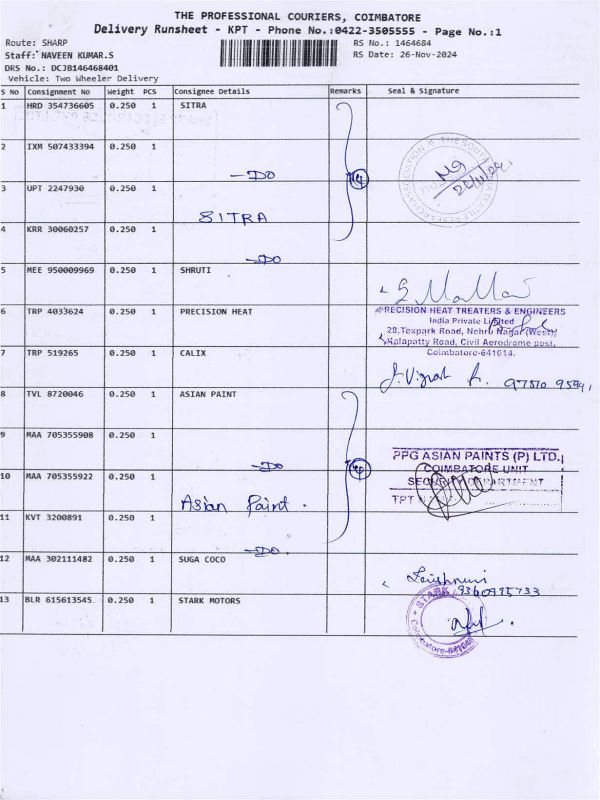 THE PROFESSIONAL COURIERS, COIMBATORE
Delivery Runsheet - KPT - Phone No.:0422-3505555 - Page No.:1
Route: SHARP RS No.: 1464684
Staff: NAVEEN KUMAR.S RS Date: 26-Nov-2024
DRS No.: DCJB146468401
Vehicle: Two Wheeler Delivery
S No Consignment No Weight PCS Consignee Details Remarks Seal & Signature
1 HRD 354736605 0.250 1 SITRA
2 IXM 507433394 0.250 1
-DO
3 UPT 2247930 0.250 1
SITRA
4 KRR 30060257 0.250 1
-DO
5 MEE 950009969 0.250 1 SHRUTI
6 TRP 4033624 0.250 1 PRECISION HEAT
PRECISION HEAT TREATERS & ENGINEERS
India Private Limited
28,Texpark Road, Nehru Nagar (West),
Kalapatty Road, Civil Aerodrome post,
Coimbatore-641014.
7 TRP 519265 0.250 1 CALIX
8 TVL 8720046 0.250 1 ASIAN PAINT
9 MAA 705355908 0.250 1
-DO
PPG ASIAN PAINTS (P) LTD.
COIMBATORE UNIT
SECURITY DEPARTMENT
10 MAA 705355922 0.250 1
Asian Paint.
11 KVT 3200891 0.250 1
-DO.
12 MAA 302111482 0.250 1 SUGA COCO
13 BLR 615613545. 0.250 1 STARK MOTORS
STARK
Coimbatore